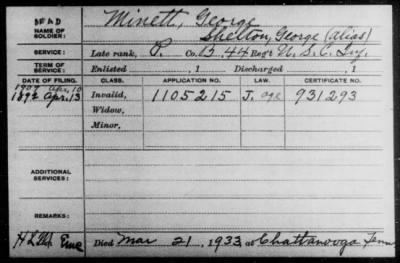 DEAD Minett, George
NAME OF SOLDIER: Shelton, George (alias)
SERVICE: Late rank, P. Co. B. 44 Reg't U. S. C. Inf.
TERM OF SERVICE: Enlisted , 1 Discharged , 1
DATE OF FILING. CLASS. APPLICATION NO. LAW. CERTIFICATE NO.
1907 Apr. 10
189 Apr. 13 Invalid, 1105215 J. age 931293
Widow,
Minor,
ADDITIONAL SERVICES:
REMARKS:
Died Mar 21, 1933, at Chattanooga Tenn